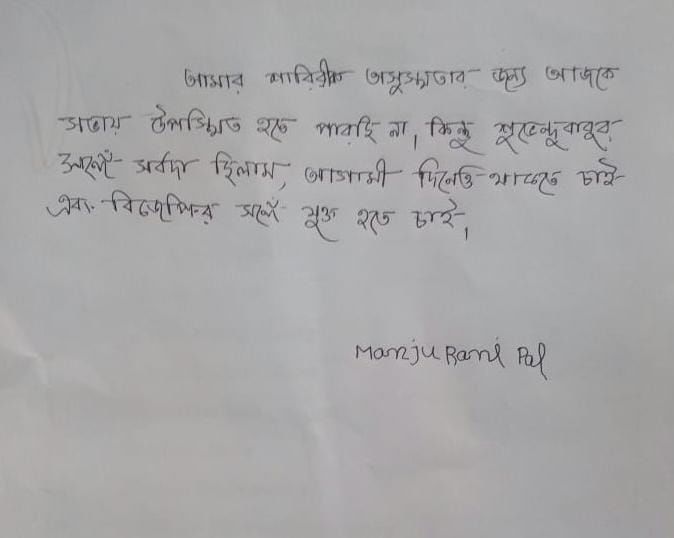 আমার শারিরীক অসুস্থতার জন্য আজকে
সভায় উপস্থিত হতে পারছি না, কিন্তু শুভেন্দুবাবুর
সঙ্গে সর্বদা ছিলাম, আগামী দিনেও থাকতে চাই
এবং বিজেপির সঙ্গে যুক্ত হতে চাই,
Manju Rani Pal